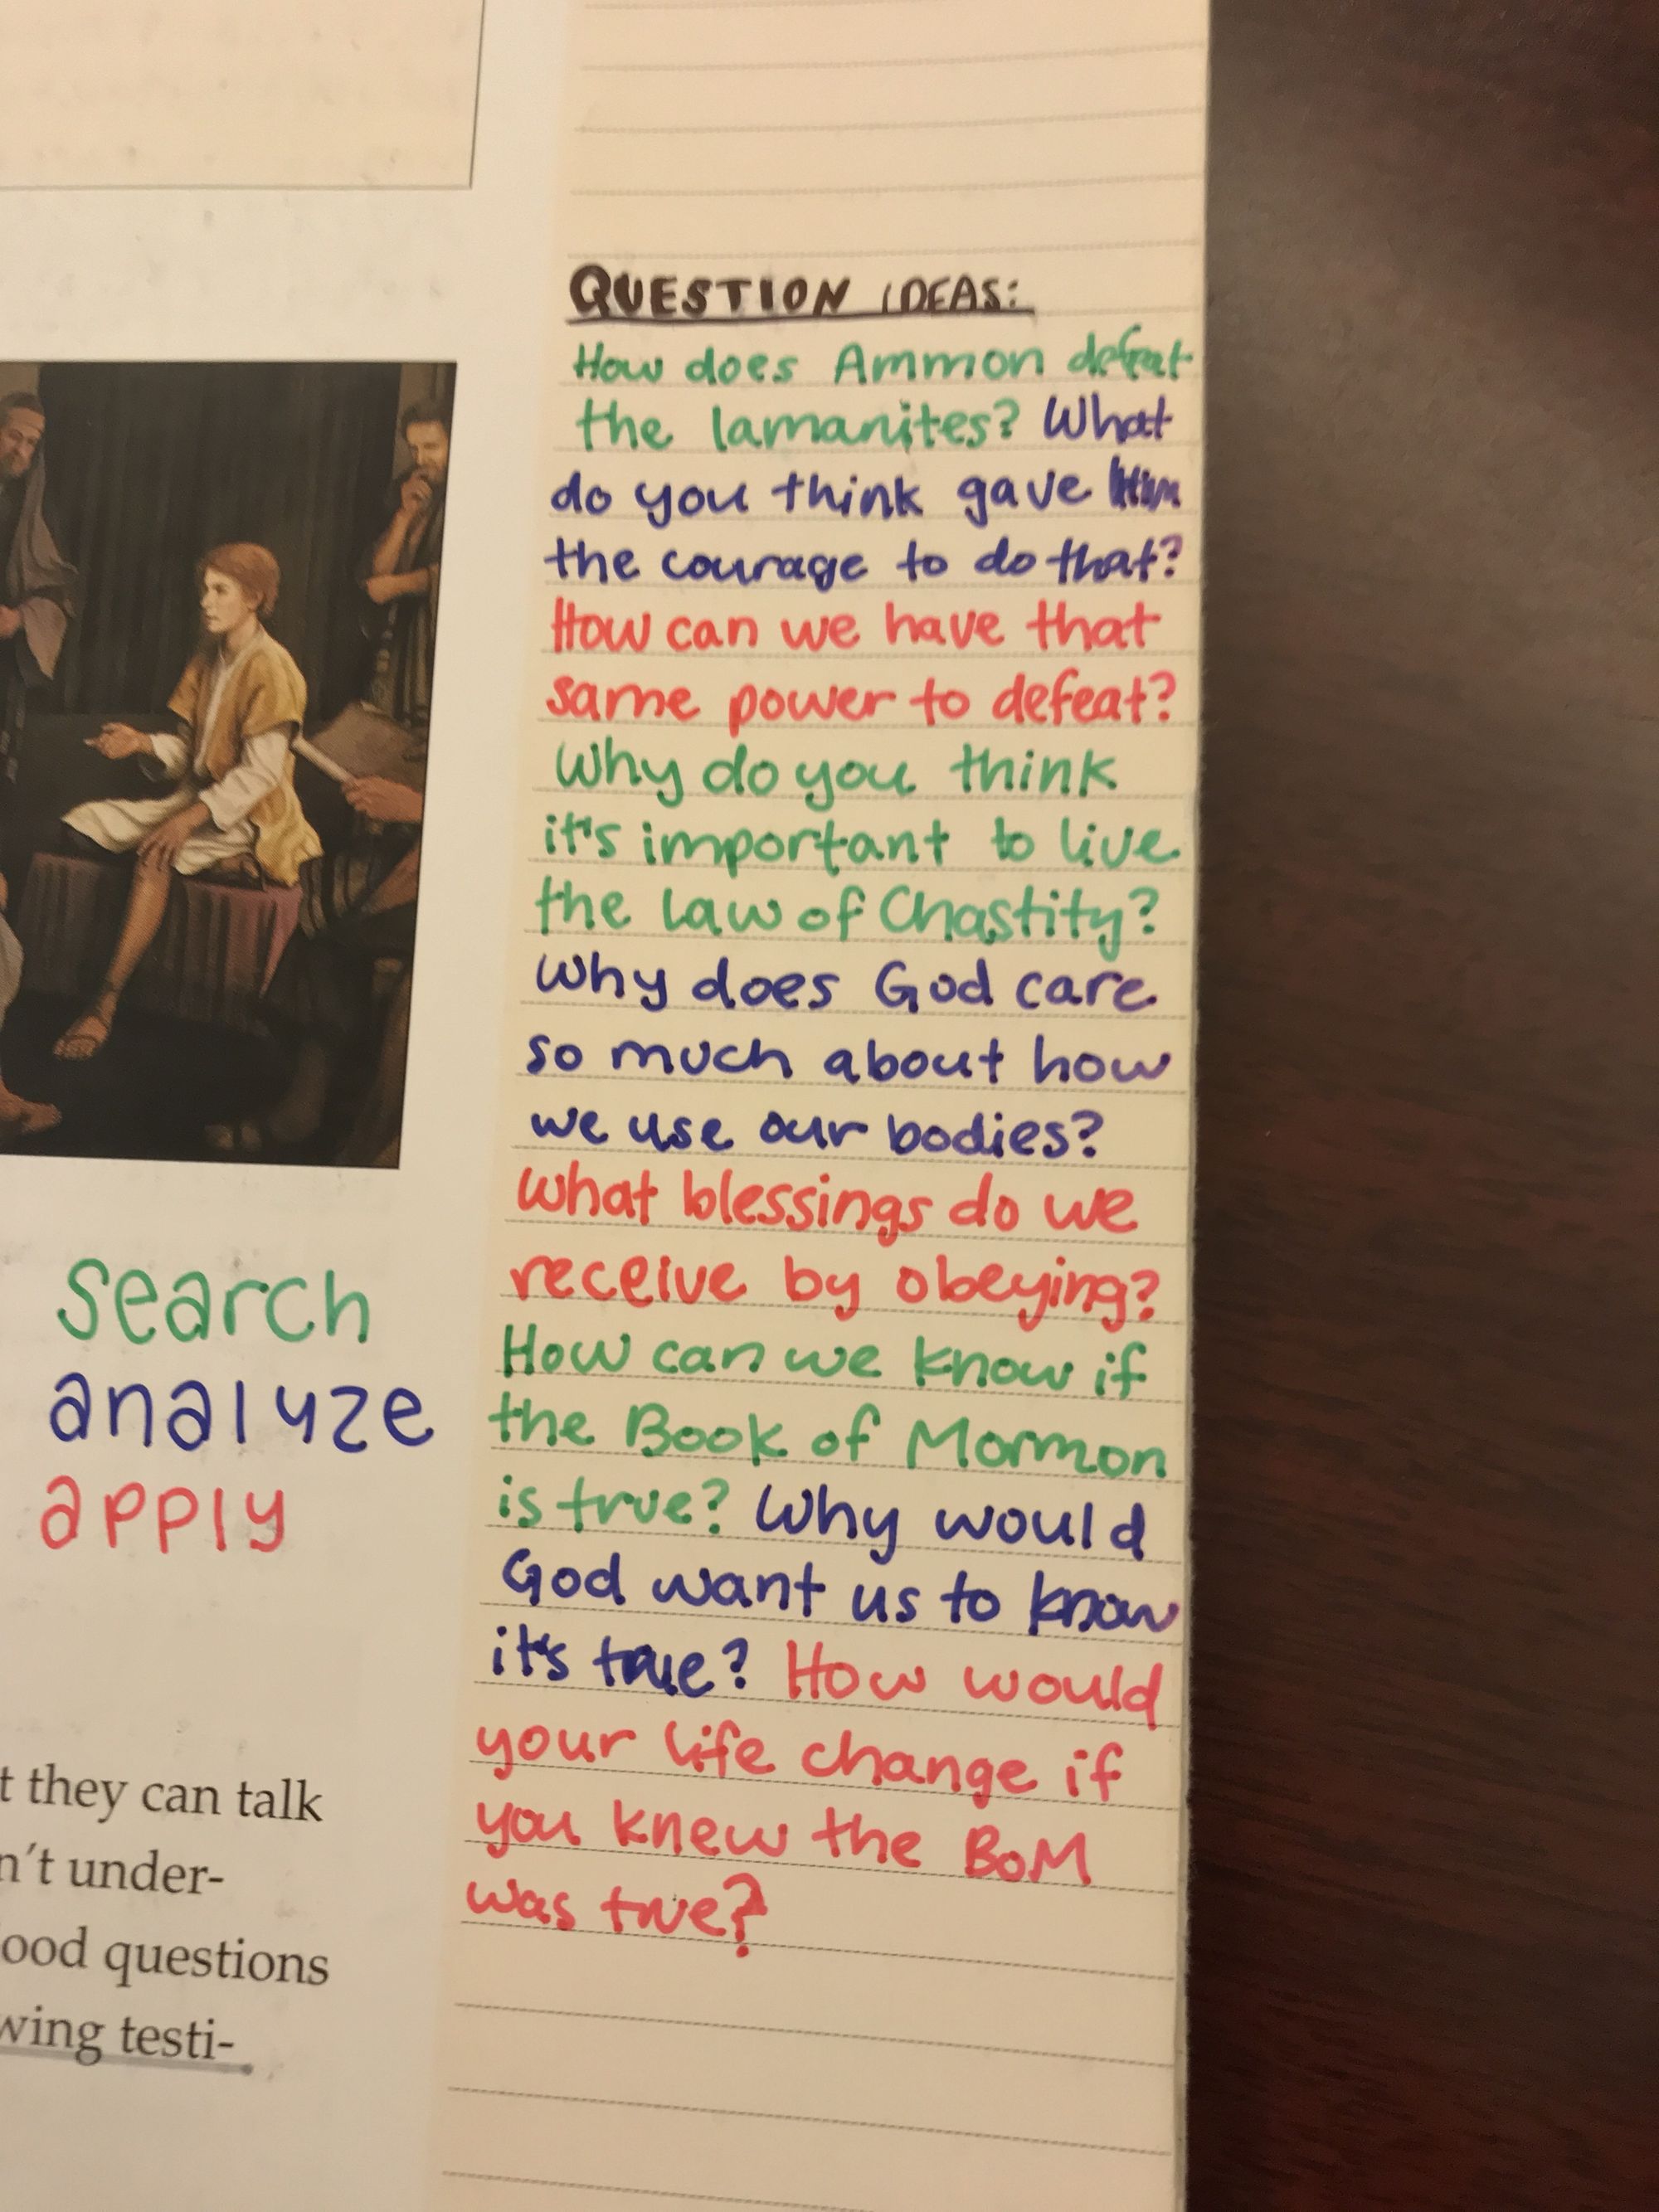 QUESTION IDEAS:
How does Ammon defeat
the lamanites? What
do you think gave him
the courage to do that?
How can we have that
same power to defeat?
Why do you think
it's important to live
the law of Chastity?
Why does God care
so much about how
we use our bodies?
What blessings do we
receive by obeying?
How can we know if
the Book of Mormon
is true? Why would
God want us to know
it's true? How would
your life change if
you knew the BoM
was true?
search
analyze
apply
t they can talk
n't under-
ood questions
wing testi-